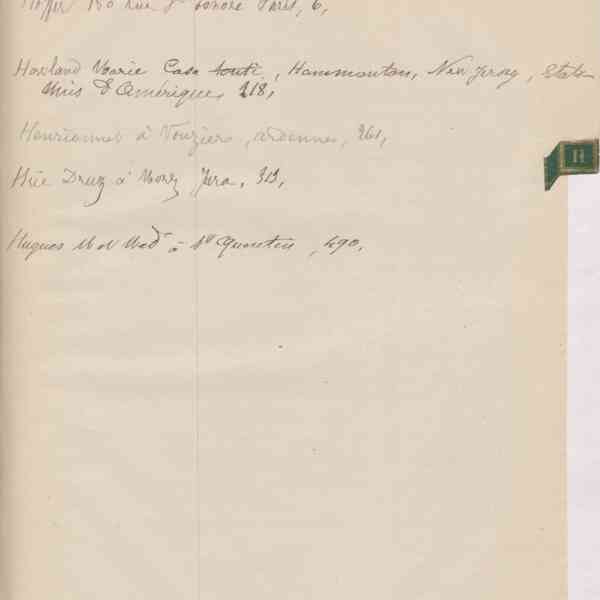 Hoffer 130 rue St honoré Paris, 6,
Howland Marie Casa tonti, Hammonton, New Jersey, Etats
Unis d'Amérique, 218,
à Vouziers, ardennes, 261,
Hüe Druz à Morez Jura, 313,
Hugues M et Made à St Quentin, 490,
H